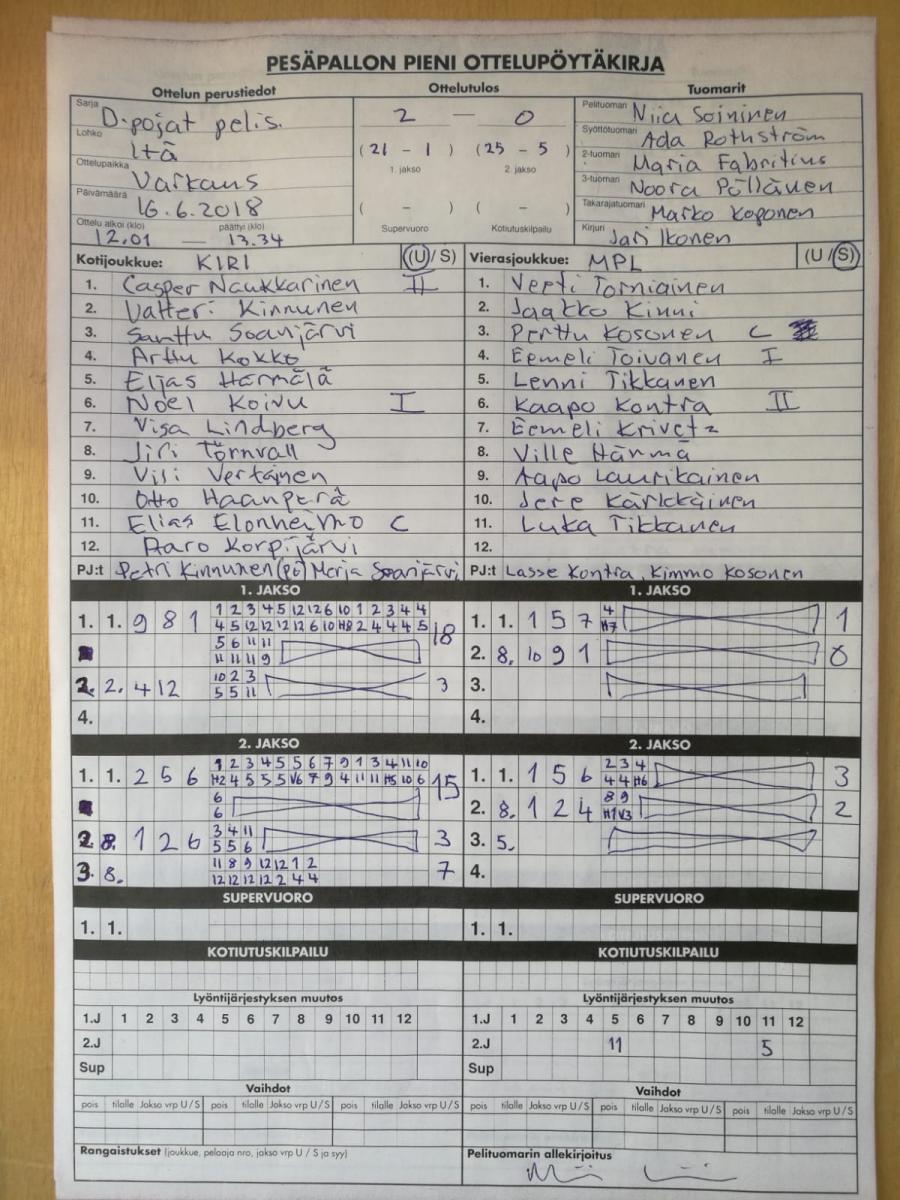 PESÄPALLON PIENI OTTELUPÖYTÄKIRJA
Ottelun perustiedot Ottelutulos Tuomarit
Sarja D-pojat pelis.
Lohko Itä
Ottelupaikka Varkaus
Päivämäärä 16.6.2018
Ottelu alkoi (klo) päättyi (klo)
12.01 — 13.34
2 — 0
(21 - 1) (25 - 5)
1. jakso 2. jakso
( - ) ( - )
Supervuoro Kotiutuskilpailu
Pelituomari Niia Soininen
Syöttötuomari Ada Rothström
2-tuomari Maria Fabritius
3-tuomari Noora Pöllänen
Takarajatuomari Marko Koponen
Kirjuri Jari Ikonen
Kotijoukkue: KIRI (U/S)
1. Casper Naukkarinen II
2. Valtteri Kinnunen
3. Santtu Soanjärvi
4. Arttu Kokko
5. Elias Härmälä
6. Noel Koivu I
7. Visa Lindberg
8. Jiri Törnvall
9. Visi Vertainen
10. Otto Haanperä
11. Elias Elonheimo C
12. Aaro Korpijärvi
PJ:t Petri Kinnunen (PJ) Merja Soanjärvi
Vierasjoukkue: MPL (U/S)
1. Veeti Torniainen
2. Jaakko Kinni
3. Perttu Kosonen C
4. Eemeli Toivanen I
5. Lenni Tikkanen
6. Kaapo Kontra II
7. Eemeli Krivetz
8. Ville Härmä
9. Aapo Laurikainen
10. Jere Kärkkäinen
11. Luka Tikkanen
12.
PJ:t Lasse Kontra, Kimmo Kosonen
1. JAKSO
1. 1. 9 8 1 1 2 3 4 5 12 12 6 10 1 2 3 4 4
4 5 12 12 12 12 6 10 H8 2 4 4 4 5 18
5 6 11 11
11 11 11 9
2. 2. 4 12 10 2 3 3
5 5 11
4.
1. JAKSO
1. 1. 1 5 7 4 1
H7
2. 8. 10 9 1 0
3.
4.
2. JAKSO
1. 1. 2 5 6 1 2 3 4 5 5 6 7 9 1 3 4 11 10
H2 4 5 5 5 V6 7 9 4 11 11 H5 10 6 15
6
6
2. 8. 1 2 6 3 4 11 3
5 5 6
3. 8. 11 8 9 12 12 1 2 7
12 12 12 12 2 4 4
2. JAKSO
1. 1. 1 5 6 2 3 4 3
4 4 H6
2. 8. 1 2 4 8 9 2
H1 V3
3. 5.
4.
SUPERVUORO SUPERVUORO
1. 1. 1. 1.
KOTIUTUSKILPAILU KOTIUTUSKILPAILU
Lyöntijärjestyksen muutos
1.J 1 2 3 4 5 6 7 8 9 10 11 12
2.J
Sup
Lyöntijärjestyksen muutos
1.J 1 2 3 4 5 6 7 8 9 10 11 12
2.J 11 5
Sup
Vaihdot Vaihdot
pois tilalle Jakso vrp U / S pois tilalle Jakso vrp U / S pois tilalle Jakso vrp U / S
pois tilalle Jakso vrp U / S pois tilalle Jakso vrp U / S pois tilalle Jakso vrp U / S
Rangaistukset (joukkue, pelaaja nro, jakso vrp U / S ja syy)
Pelituomarin allekirjoitus